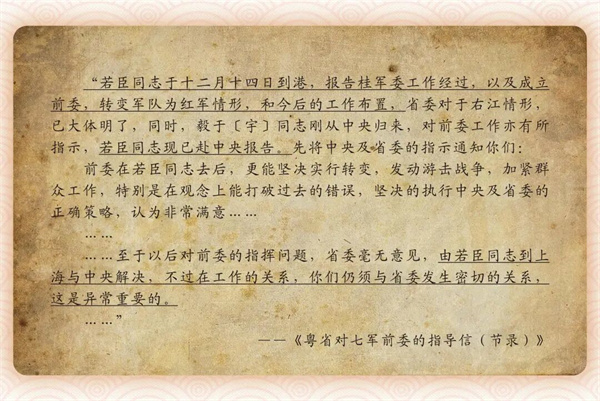 “若臣同志于十二月十四日到港，报告桂军委工作经过，以及成立
前委，转变军队为红军情形，和今后的工作布置，省委对于右江情形，
已大体明了，同时，毅于〔宇〕同志刚从中央归来，对前委工作亦有所
指示，若臣同志现已赴中央报告。先将中央及省委的指示通知你们：
前委在若臣同志去后，更能坚决实行转变，发动游击战争，加紧群
众工作，特别是在观念上能打破过去的错误，坚决的执行中央及省委的
正确策略，认为非常满意……
……
……至于以后对前委的指挥问题，省委毫无意见，由若臣同志到上
海与中央解决，不过在工作的关系，你们仍须与省委发生密切的关系，
这是异常重要的。
……”
——《粤省对七军前委的指导信（节录）》